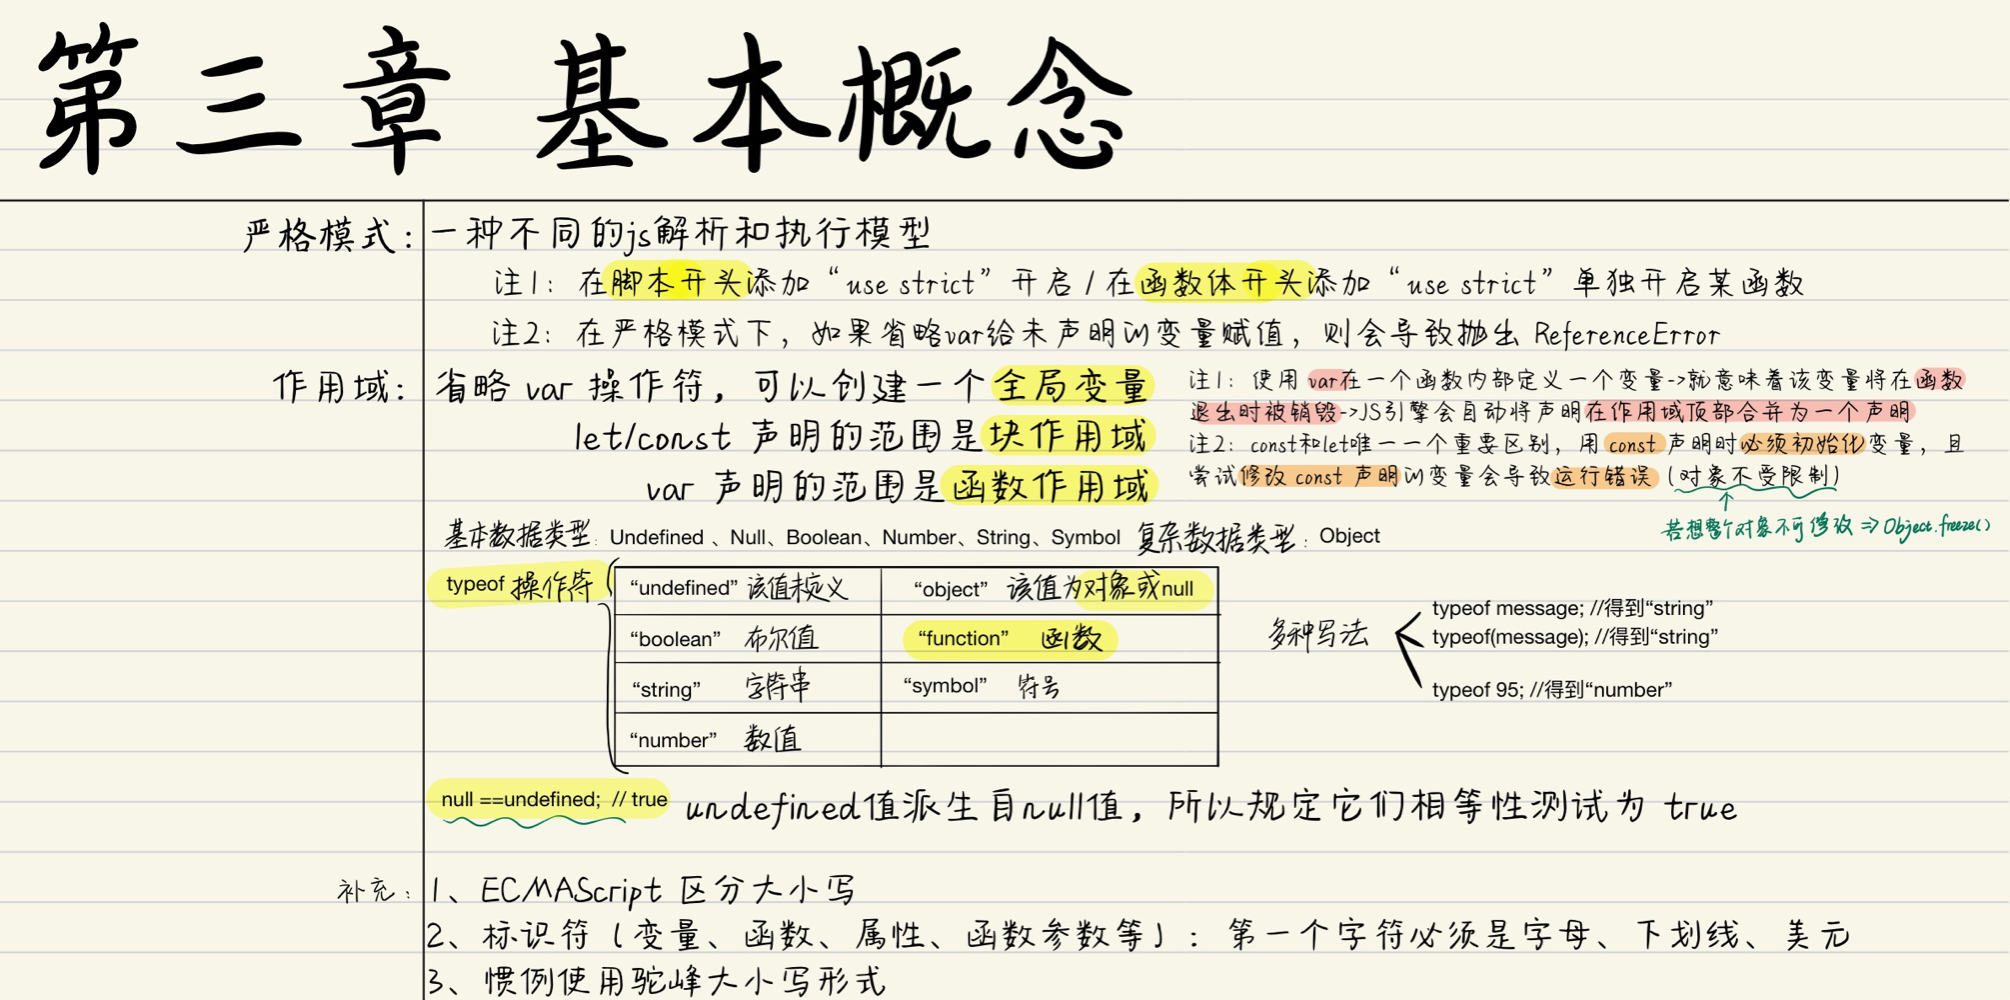 第三章 基本概念
严格模式：一种不同的js解析和执行模型
注1：在脚本开头添加“use strict”开启 / 在函数体开头添加“use strict”单独开启某函数
注2：在严格模式下，如果省略var给未声明的变量赋值，则会导致抛出 ReferenceError
作用域：省略 var 操作符，可以创建一个全局变量
let/const 声明的范围是块作用域
var 声明的范围是函数作用域
注1：使用 var在一个函数内部定义一个变量->就意味着该变量将在函数
退出时被销毁->JS引擎会自动将声明在作用域顶部合并为一个声明
注2：const和let唯一一个重要区别，用 const 声明时必须初始化变量，且
尝试修改 const 声明的变量会导致运行错误（对象不受限制）
若想整个对象不可修改 => Object.freeze()
基本数据类型：Undefined 、Null、Boolean、Number、String、Symbol 复杂数据类型：Object
typeof 操作符
“undefined” 该值未定义 “object” 该值为对象或null
“boolean” 布尔值 “function” 函数
“string” 字符串 “symbol” 符号
“number” 数值
多种写法
typeof message; //得到“string”
typeof(message); //得到“string”
typeof 95; //得到“number”
null ==undefined; // true undefined值派生自null值，所以规定它们相等性测试为 true
补充：1、ECMAScript 区分大小写
2、标识符（变量、函数、属性、函数参数等）：第一个字符必须是字母、下划线、美元
3、惯例使用驼峰大小写形式